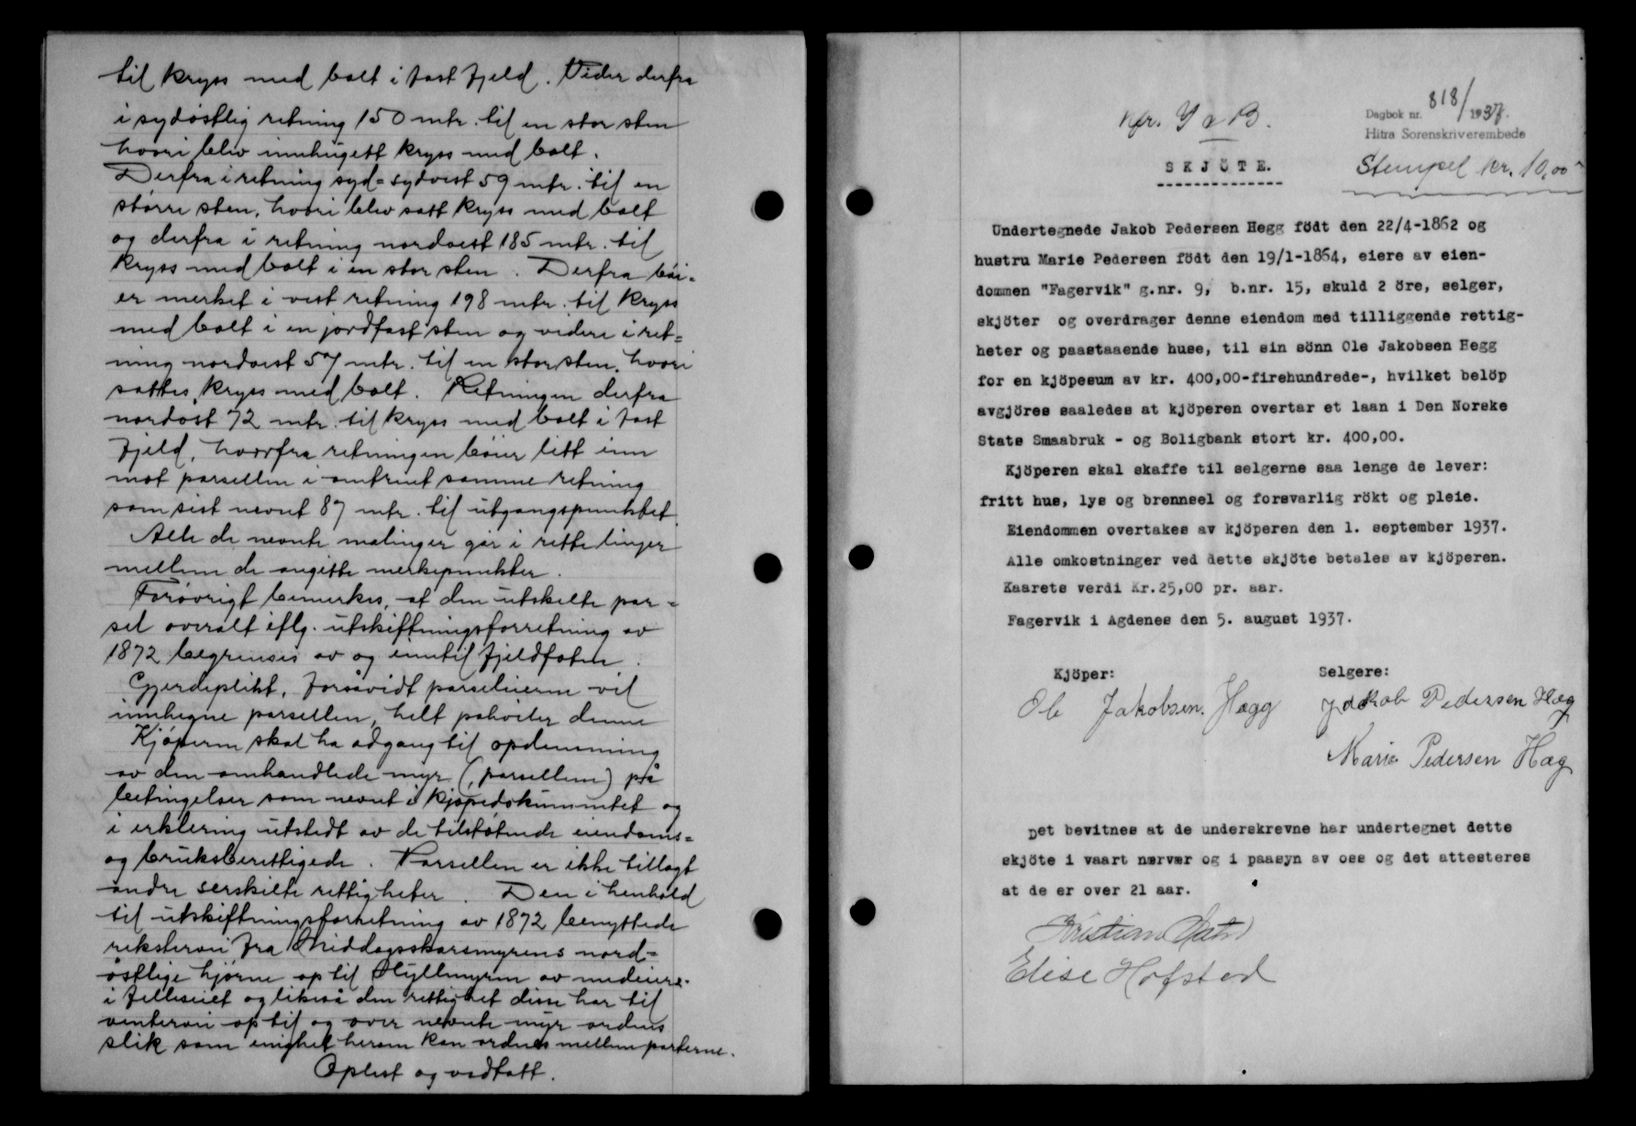 til kryss med bolt i fast fjeld. Vider derfra
i sydöstlig retning 150 mtr. til en stor sten
hvori blev innhugett kryss med bolt.
Derfra i retning syd=sydvest 59 mtr. til en
större sten, hvori blev satt kryss med bolt
og derfra i retning nordvest 185 mtr. til
kryss med bolt i en stor sten. Derfra böi=
er merket i vest retning 198 mtr. til kryss
med bolt i en jordfast sten og videre i ret=
ning nordvest 57 mtr. til en stor sten, hvori
sattes kryss med bolt. Retningen derfra
nordost 72 mtr. til kryss med bolt i fast
fjeld, hvorfra retningen böier litt inn
mot parsellen i omtrent samme retning
som sist nevnt 87 mtr. til utgangspunktet.
Alle de nevnte målinger går i rette linjer
mellem de angitte merkepunkter.
Forövrigt bemerkes, at den utskilte par=
sel overalt iflg. utskiftningsforretning av
1872 begrenses av og inntil fjeldfoten.
Gjerdeplikt, forsåvidt parseleierne vil
innhegne parsellen, helt påhviler denne
Kjöperen skal ha adgang til opdemming
av den omhandlede myr (parsellen) på
betingelser som nevnt i kjöpedokumentet og
i erklering utstedt av de tilstötende eiendoms=
og bruksberettigede. Parsellen er ikke tillagt
andre serskilte rettigheter. Den i henhold
til utskiftningsforretning av 1872 benyttede
rekstervei fra Middagsskarsmyrens nord=
östlige hjörne op til Hyllmyren av medeiere
i felleseiet og likeså den rettighet disse har til
vintervei op til og over nevnte myr ordnes
slik som enighet herom kan ordnes mellem parterne.
Oplest og vedtatt.
Kfr. G a B.
Dagbok nr. 818/1937.
Hitra Sorenskriverembede
Stempel kr. 10,00
SKJÖTE.
Undertegnede Jakob Pedersen Hegg födt den 22/4-1862 og
hustru Marie Pedersen födt den 19/1-1864, eiere av eien-
dommen "Fagervik" g.nr. 9, b.nr. 15, skuld 2 öre, selger,
skjöter og overdrager denne eiendom med tilliggende rettig-
heter og paastaaende huse, til sin sönn Ole Jakobsen Hegg
for en kjöpesum av kr. 400,00-firehundrede-, hvilket belöp
avgjöres saaledes at kjöperen overtar et laan i Den Norske
Stats Smaabruk - og Boligbank stort kr. 400,00.
Kjöperen skal skaffe til selgerne saa lenge de lever:
fritt hus, lys og brennsel og forsvarlig rökt og pleie.
Eiendommen overtakes av kjöperen den 1. september 1937.
Alle omkostninger ved dette skjöte betales av kjöperen.
Kaarets verdi Kr.25,00 pr. aar.
Fagervik i Agdenes den 5. august 1937.
Kjöper: Selgere:
Ole Jakobsen. Hægg Jakob Pedersen Hæg
Marie Pedersen Hæg
Det bevitnes at de underskrevne har undertegnet dette
skjöte i vaart nærvær og i paasyn av oss og det attesteres
at de er over 21 aar.
Kristian
Elise Hofstad